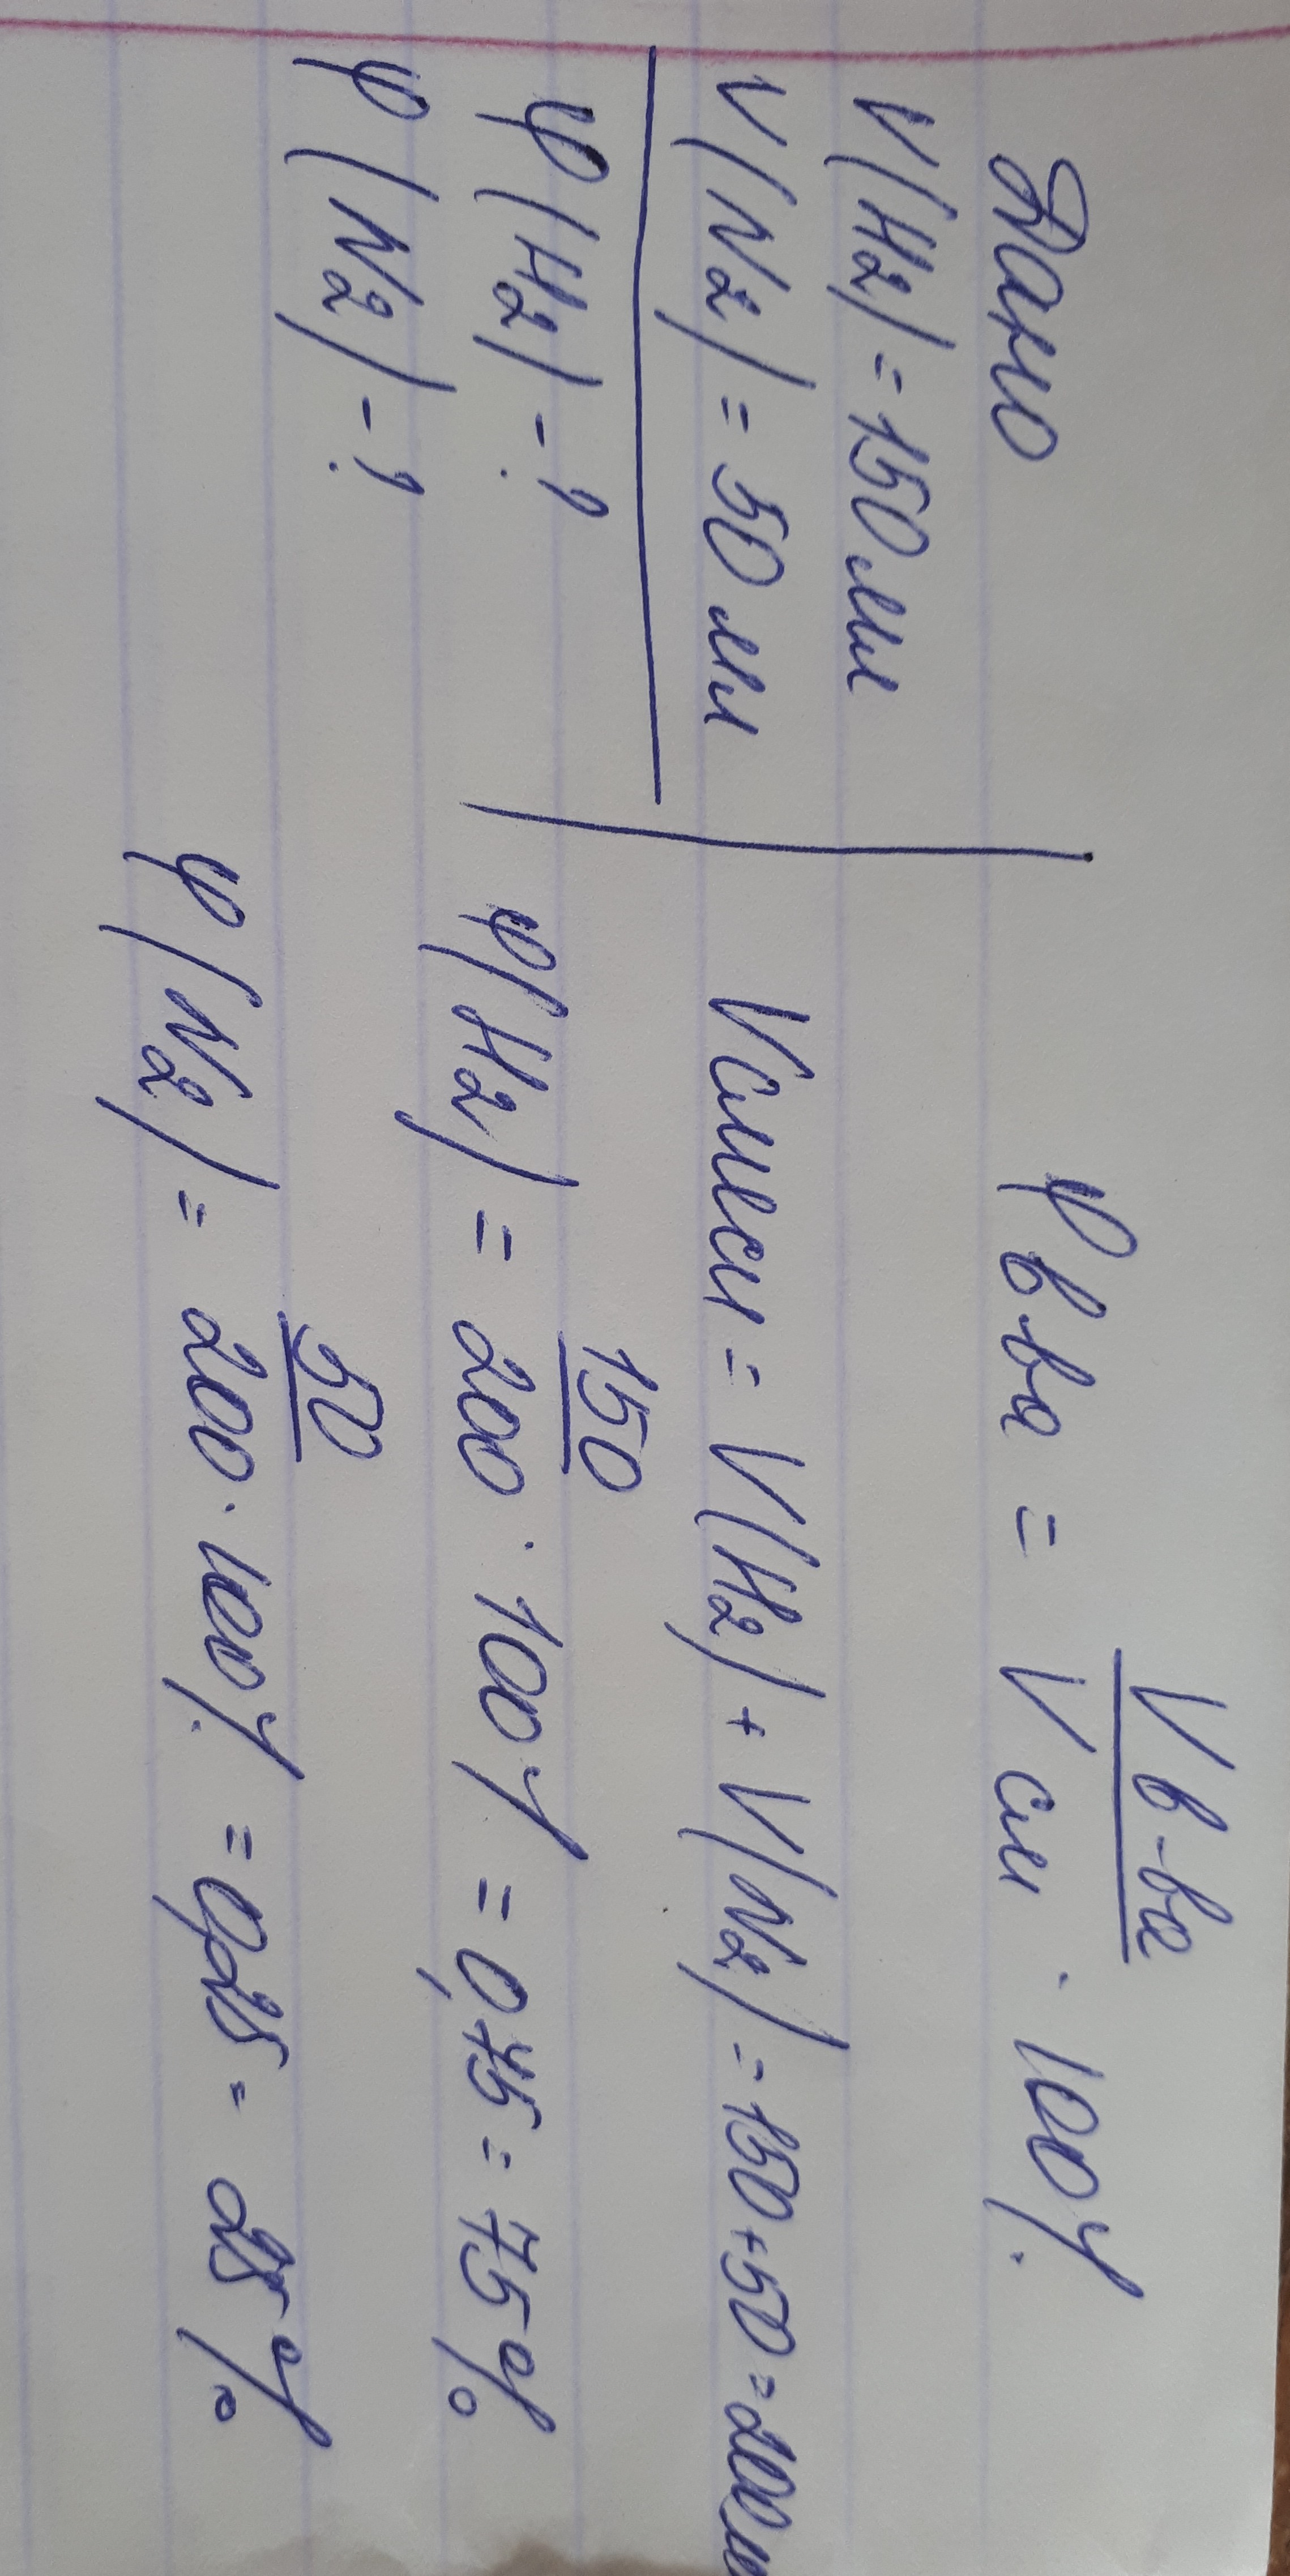 Дано
V(H2) = 150 мл
V(N2) = 50 мл
φ(H2) - ?
φ(N2) - ?
φ в ва = V в-ва / V см · 100%
V смеси = V(H2) + V(N2) = 150 + 50 = 200 мл
φ(H2) = 150 / 200 · 100% = 0,75 = 75%
φ(N2) = 50 / 200 · 100% = 0,25 = 25%